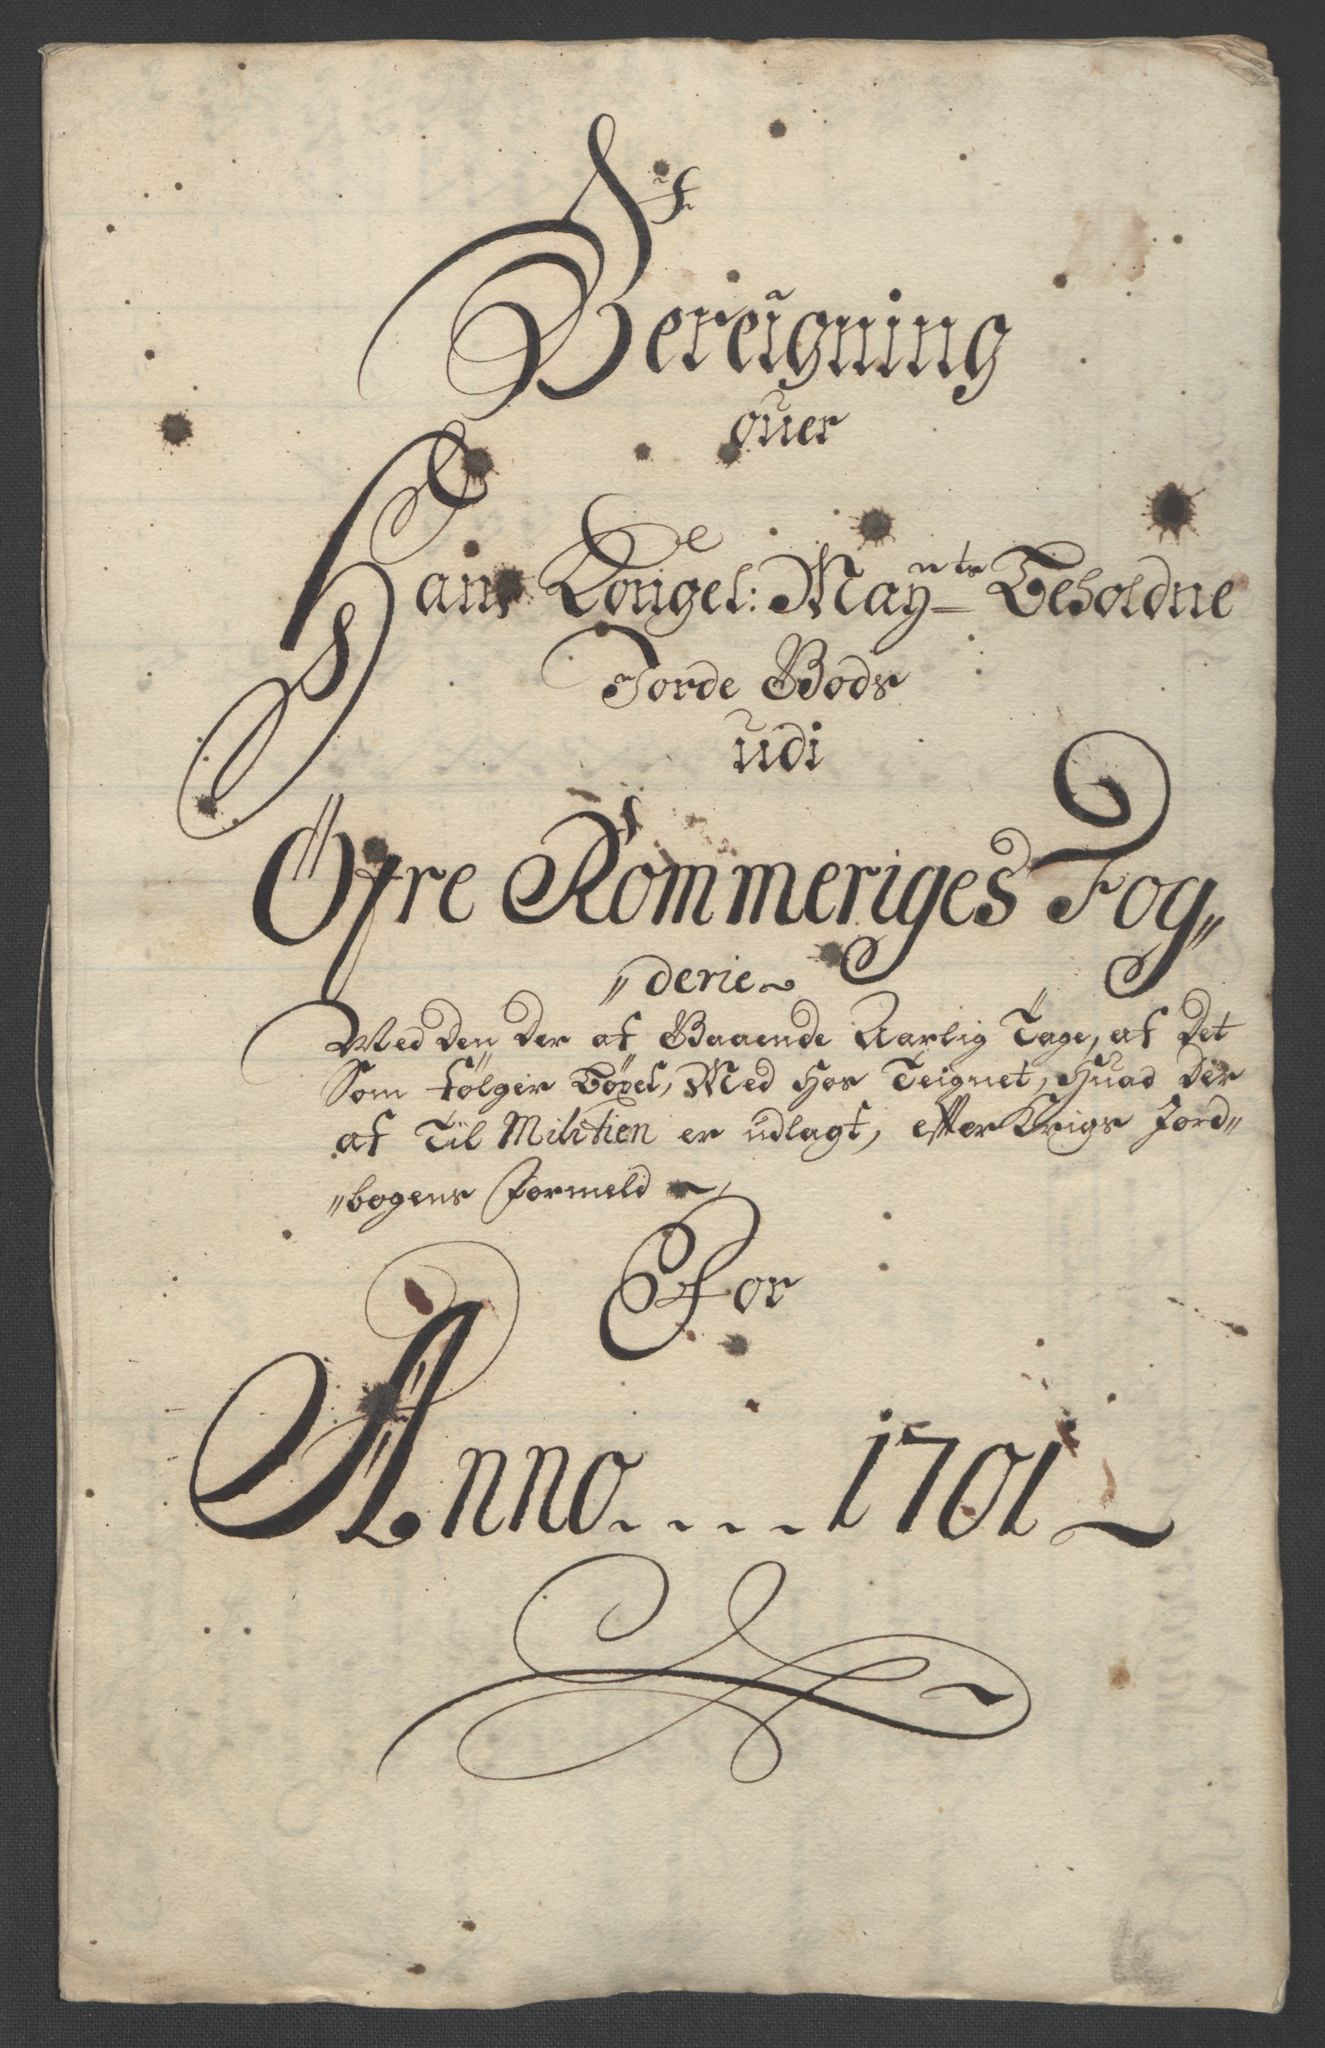 Bereigning
ouer
Hans Kongel: Mayts Beholdne
Jorde Gods
udi
Öfre Rommeriges Fog„
„derie
Med den der af Gaaende Aarlig Tage, af det
Som følger Bøxel, Med Hos Teignet, Huad der
af Til Militien er udlagt, efter Krigs Jord„
„bogens Formeld
For
Anno . . . . 1701